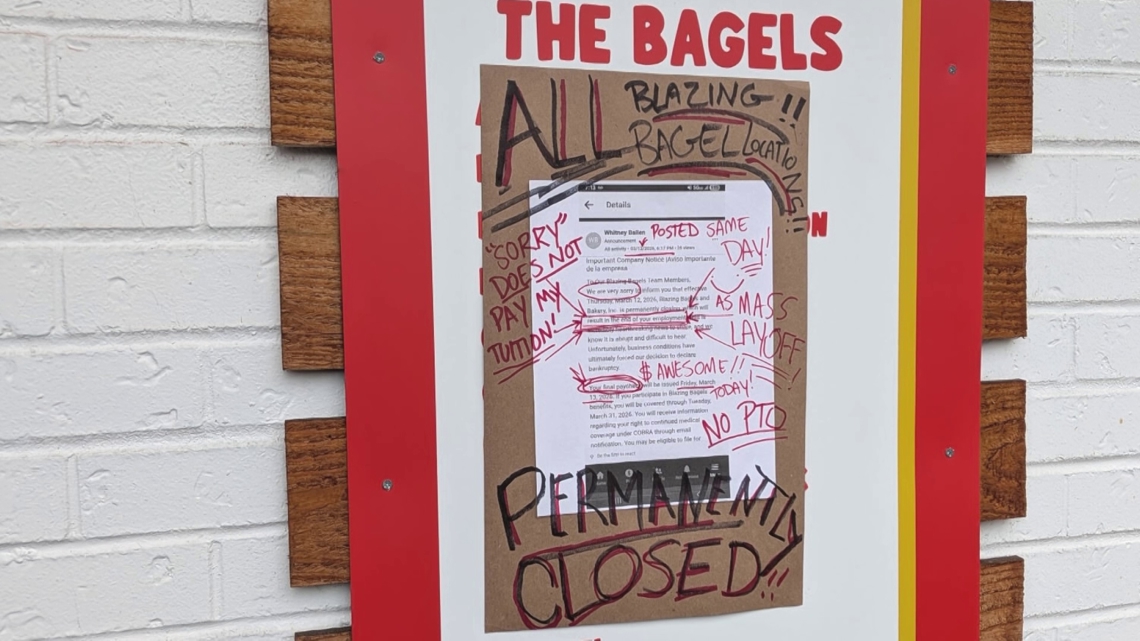 THE BAGELS
ALL BLAZING!!
BAGEL LOCATIONS!!
"SORRY"
DOES NOT
PAY MY
TUITION!
Details
Whitney
POSTED SAME
DAY!
Announcement
Important Company Notice (Aviso Importante
de la empresa
Blazing Bagels Team Members,
We are very sorry to inform you that effective
Thursday, March 12, 2026, Blazing Bagels and
Bakery, Inc. is permanently
result in the end of your employment
AS MASS
LAYOFF
know it is abrupt and difficult to hear.
Unfortunately, business conditions have
ultimately forced our decision to declare
bankruptcy.
$ AWESOME!!
TODAY!
Your final paycheck will be issued Friday, March
13, 2026. If you participate in Blazing Bagels
benefits, you will be covered through Tuesday,
March 31, 2026. You will receive information
regarding your right to continued medical
coverage under COBRA through email
notification. You may be eligible to file for
NO PTO
Be the first to react
PERMANENTLY
CLOSED!!
N